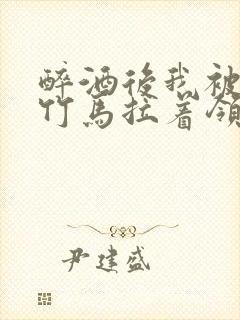 醉酒後我被
竹馬拉着領
尹建盛